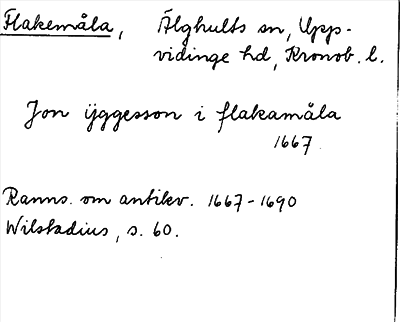 Flakemåla, Älghults sn, Upp-
vidinge hd, Kronob. l.
Jon ÿggesson i flakamåla
1667.
Ranns. om antikv. 1667-1690
Wilstadius, s. 60.